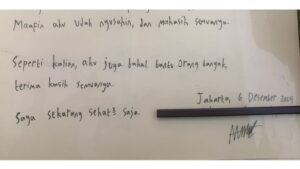 Maafin aku udah ngusahin, dan makasih semuanya.
Seperti kalian, aku juga bakal bantu orang banyak,
terima kasih semuanya.
Saya sekarang sehat² saja.
Jakarta, 6 Desember 2019